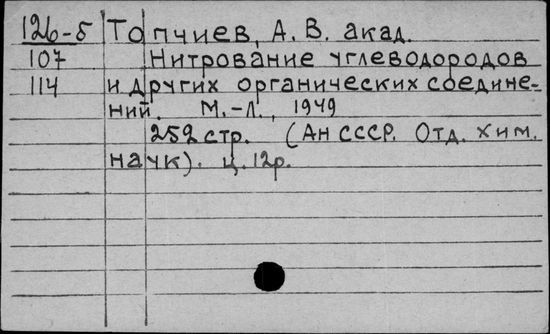 126-5 Топчиев, А. В. акад.
107 Нитрование углеводородов
114 и других органических соедине-
ний. М.-Л., 1949
252 стр. (Ан СССР. Отд. хим.
наук). ц. 12р.